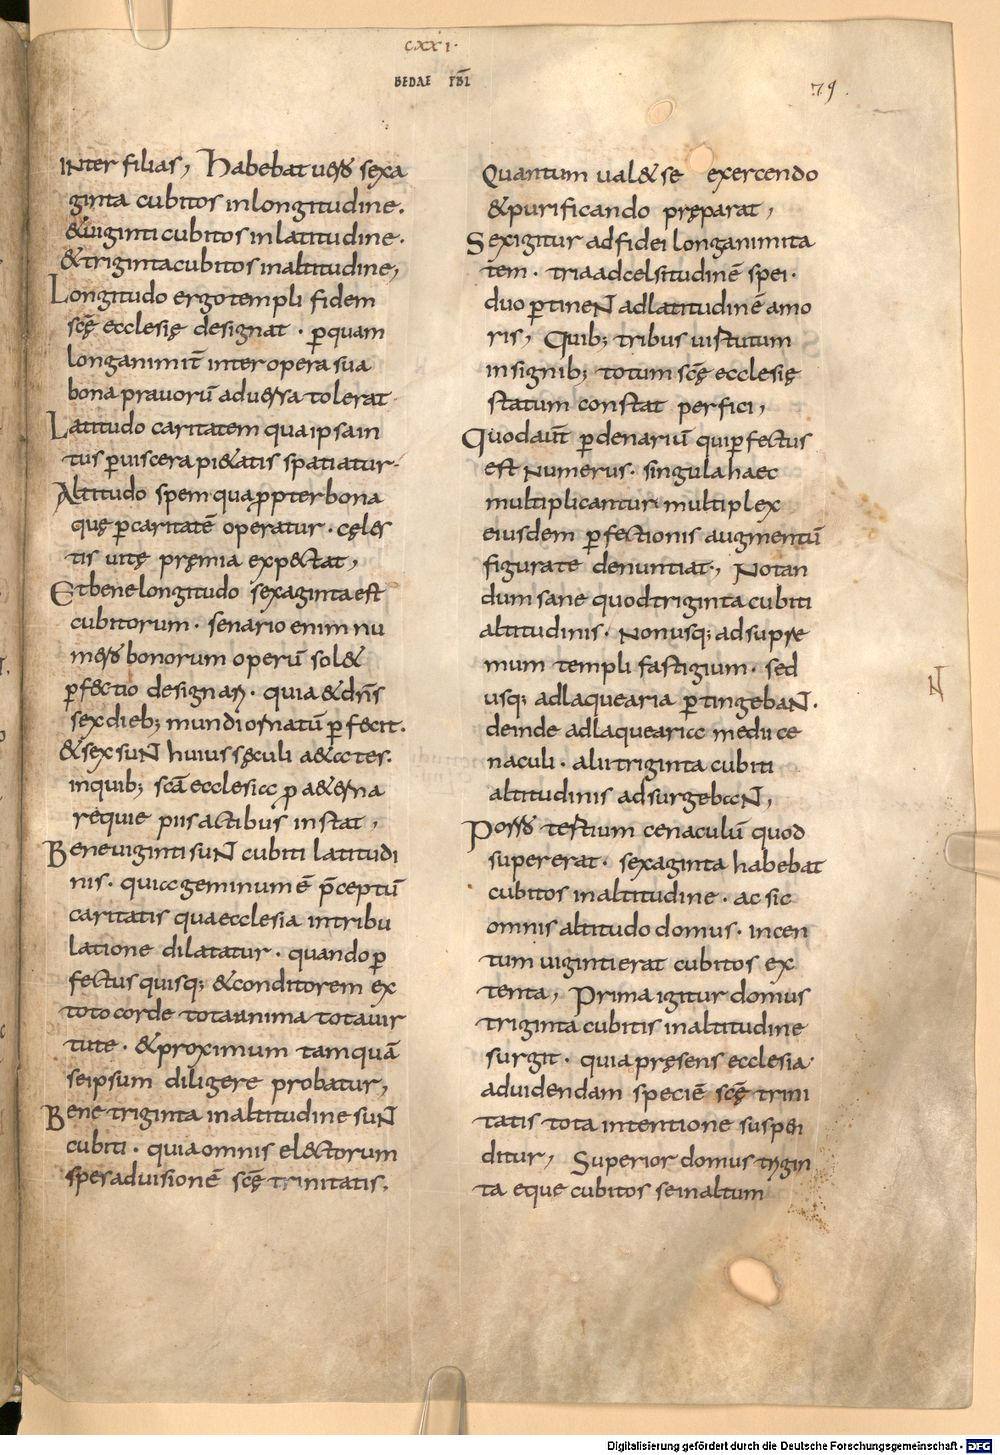 CXXI·
BEDAE PBI
79.
inter filias, Habebat u&ro sexa
ginta cubitos inlongitudine.
&uiginti cubitos inlatitudine.
&triginta cubitos inaltitudine,
Longitudo ergo templi fidem
scę̄ ecclesię designat · p̄quam
longanimit̄ inter opera sua
bona prauorū aduersa tolerat
Latitudo caritatem qua ipsa in
tus p̄uiscera pi&atis spatiatur.
Altitudo spem qua p̄pter bona
quę p̄caritatē operatur · cęles
tis uitę pręmia exp&tat,
Et bene longitudo sexaginta est
cubitorum · senario enim nu
mero bonorum operū sol&
p̄f&tio designari · quia & dn̄s
sex dieb; mundi ornatū p̄fecit.
&sex sunt huius sęculi a&ates.
inquib; scā ecclesia p̄ a&erna
requie piis actibus instat,
Bene uiginti sunt cubiti latitudi
nis · quia geminum ē p̄ceptū
caritatis qua ecclesia in tribu
latione dilatatur · quando p̄
fectus quisq; & conditorem ex
toto corde tota anima tota uir
tute · &proximum tamquā
seipsum diligere probatur,
Bene triginta inaltitudine sunt
cubiti · quia omnis el&torum
spes aduisionē scę̄ trinitatis.
Quantum ual& se exercendo
&purificando pręparat,
Sex igitur ad fidei longanimita
tem · tria ad celsitudinē spei ·
duo p̄tinent ad latitudinē amo
ris, Quib; tribus uirtutum
insignib; totum scę̄ ecclesię
statum constat perfici,
Quod aut̄ p̄denariū qui p̄fectus
est numerus · singula haec
multiplicantur multiplex
eiusdem p̄fectionis augmentū
figurate denuntiat, Notan
dum sane quod triginta cubiti
altitudinis · Non usq; ad supre
mum templi fastigium · sed
usq; ad laquearia p̄tingebant.
deinde ad laquearia medii ce
naculi · alii triginta cubiti
altitudinis adsurgebant,
Porro tertium cenaculū quod
supererat · sexaginta habebat
cubitos inaltitudine · ac sic
omnis altitudo domus · in cen
tum uiginti erat cubitos ex
tenta, Prima igitur domus
triginta cubitis inaltitudine
surgit · quia pręsens ecclesia
ad uidendam speciē scę̄ trini
tatis tota intentione suspen
ditur, Superior domus trigin
ta eque cubitos se in altum
N
Digitalisierung gefördert durch die Deutsche Forschungsgemeinschaft - DFG